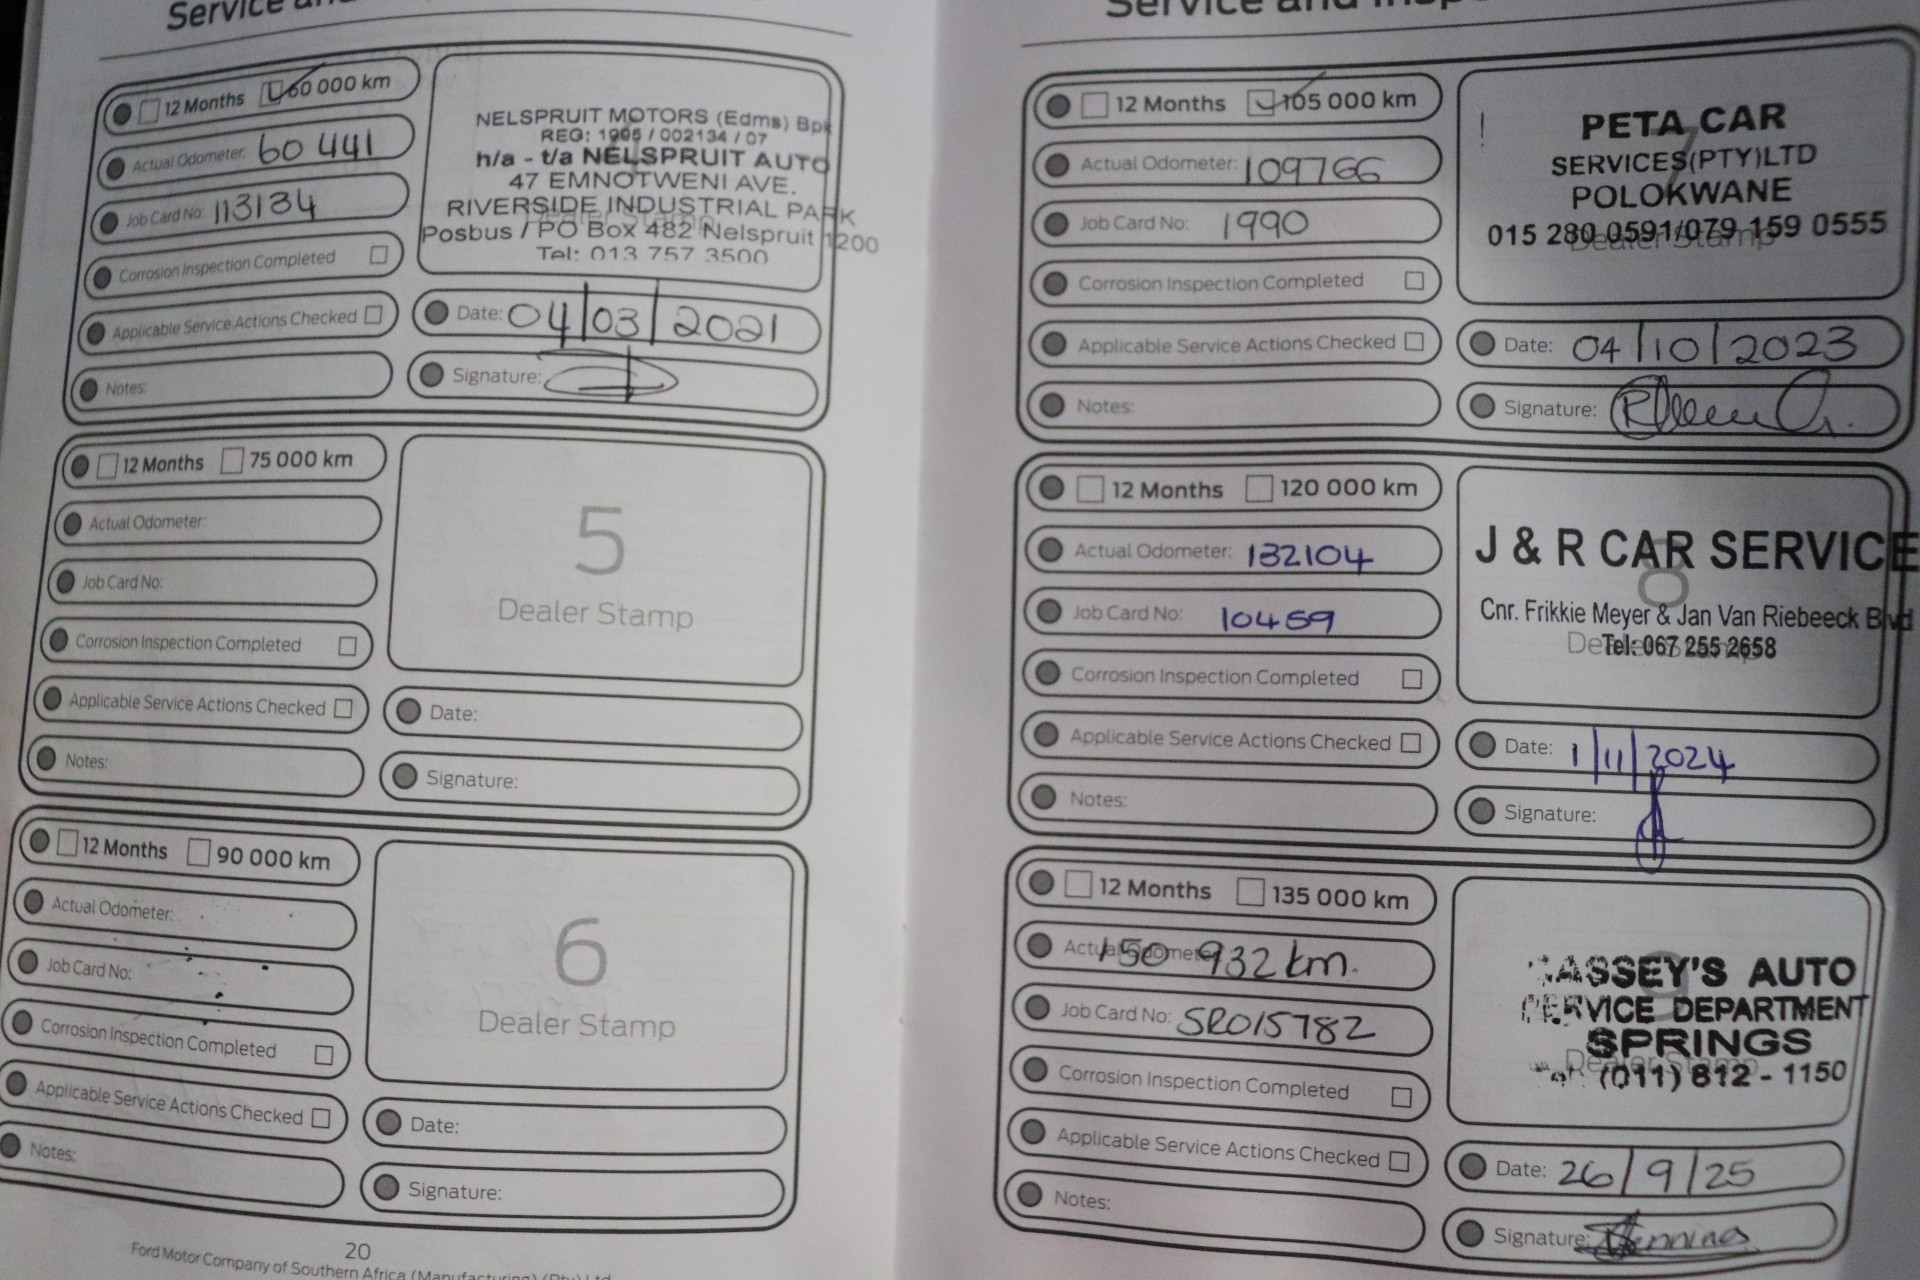 Service and
12 Months 60 000 km
Actual Odometer: 60 441
Job Card No: 113134
Corrosion Inspection Completed
Applicable Service Actions Checked
Notes:
NELSPRUIT MOTORS (Edms) Bpk
REG: 1995 / 002134 / 07
h/a - t/a NELSPRUIT AUTO
47 EMNOTWENI AVE.
RIVERSIDE INDUSTRIAL PARK
Dealer Stamp
Posbus / PO Box 482 Nelspruit 1200
Tel: 013 757 3500
Date: 04/03/2021
Signature:
12 Months 75 000 km
Actual Odometer:
Job Card No:
Corrosion Inspection Completed
Applicable Service Actions Checked
Notes:
5
Dealer Stamp
Date:
Signature:
12 Months 90 000 km
Actual Odometer:
Job Card No:
Corrosion Inspection Completed
Applicable Service Actions Checked
Notes:
6
Dealer Stamp
Date:
Signature:
20
Ford Motor Company of Southern Africa (Manufacturing) (Pty) Ltd
Service and
12 Months 105 000 km
Actual Odometer: 109766
Job Card No: 1990
Corrosion Inspection Completed
Applicable Service Actions Checked
Notes:
7
PETA CAR
SERVICES(PTY)LTD
POLOKWANE
015 280 0591/079 159 0555
Dealer Stamp
Date: 04/10/2023
Signature:
12 Months 120 000 km
Actual Odometer: 132104
Job Card No: 10459
Corrosion Inspection Completed
Applicable Service Actions Checked
Notes:
J & R CAR SERVICE
8
Cnr. Frikkie Meyer & Jan Van Riebeeck Blvd
Dealer Stamp
Tel: 067 255 2658
Date: 1/11/2024
Signature:
12 Months 135 000 km
Actual Odometer: 150 932 km.
Job Card No: SR015782
Corrosion Inspection Completed
Applicable Service Actions Checked
Notes:
9
AUTO
SERVICE DEPARTMENT
SPRINGS
Dealer Stamp
(011) 812 - 1150
Date: 26/9/25
Signature: